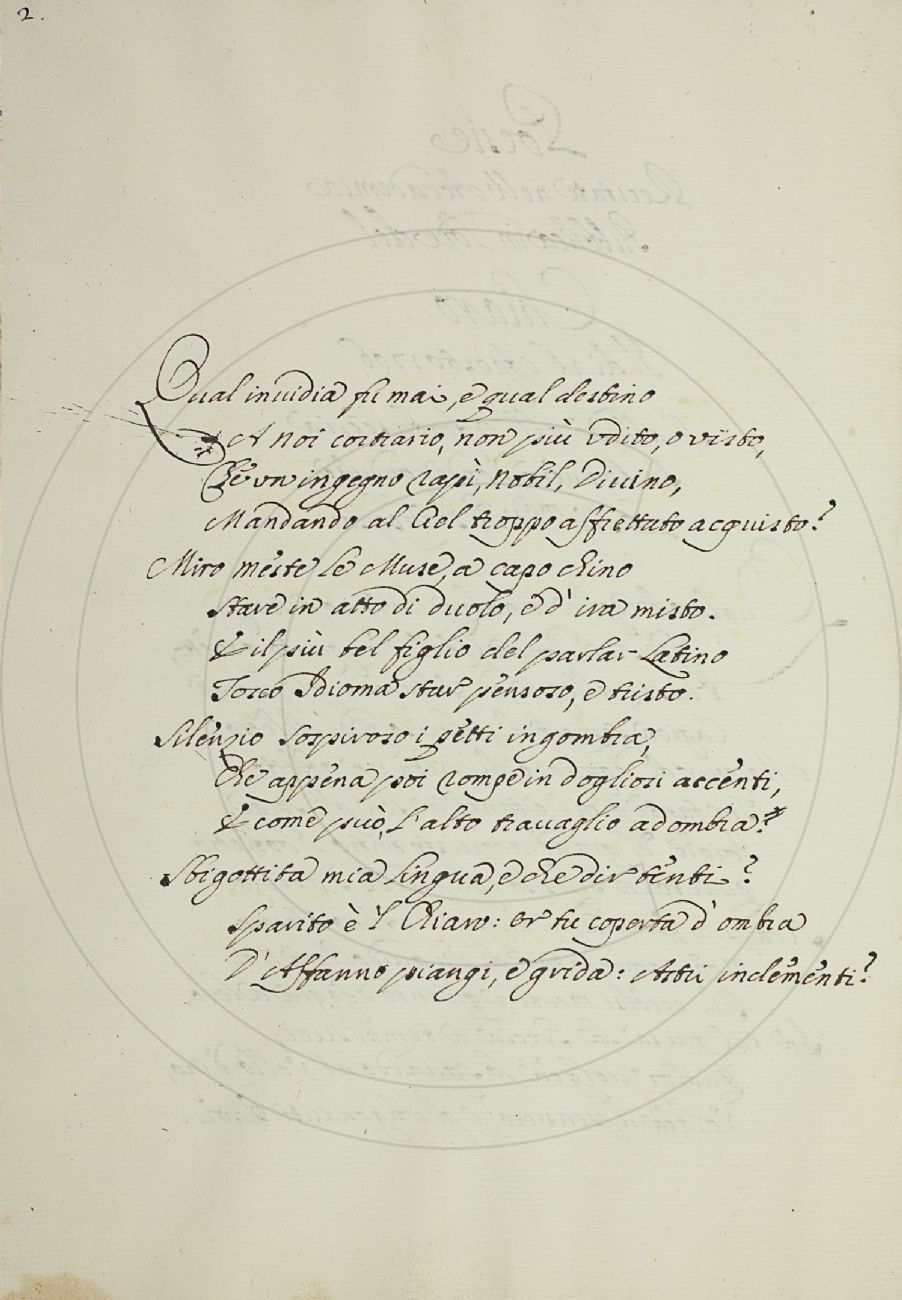 2.
Qual inuidia fù mai, e qual destino
A noi contrario, non più vdito, o visto,
Che vn ingegno rapì, Nobil, Diuino,
Mandando al Ciel troppo affrettato acquisto?
Miro meste le Muse, a capo chino
Stare in atto di duolo, e d'ira misto.
E il più bel figlio del parlar Latino
Tosco Idioma star pensoso, e tristo.
Silenzio sospiroso i petti ingombra,
Che appena poi rompe in dogliosi accenti,
E come può, l'alto trauaglio adombra?
Sbigottita mia Lingua, e che dir tenti?
Sparito è 'l Chiaro: or tu coperta d'ombra
D'Affanno piangi, e grida: Astri inclementi?